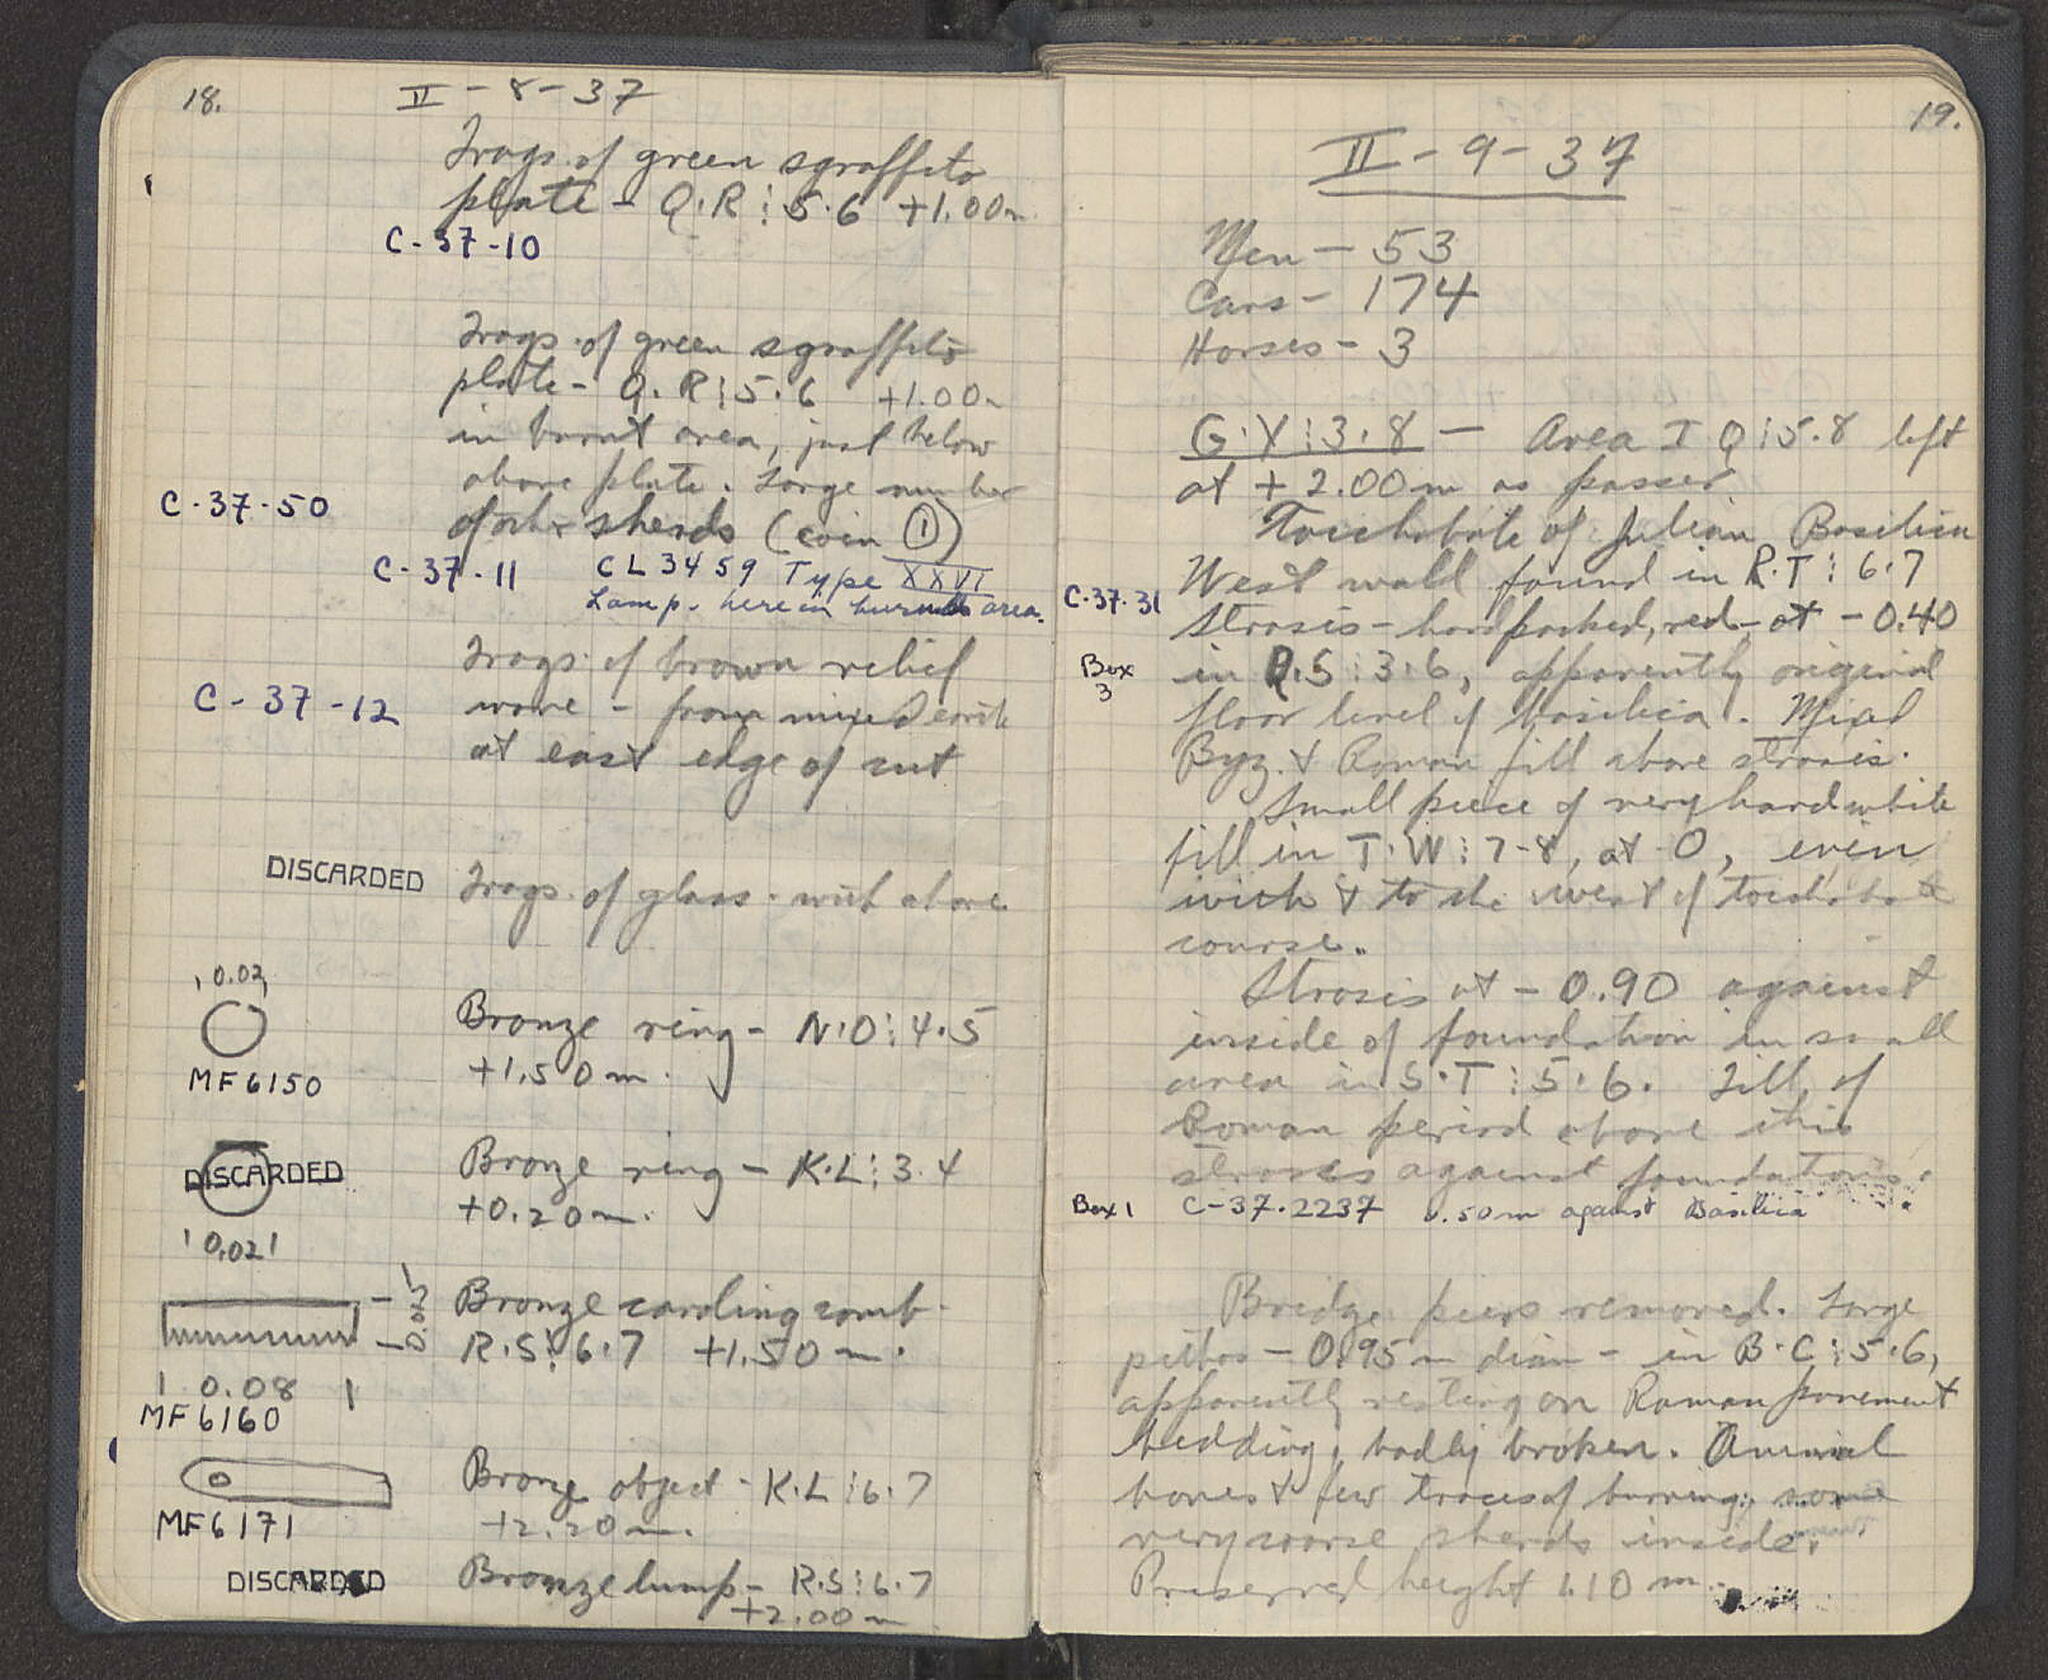 18.
II - 8 - 37
Frags. of green sgraffito
plate - Q.R ⋮ 5.6 +1.00m
C-37-10
Frags. of green sgraffito
plate - Q.R ⋮ 5.6 +1.00m
in burnt area, just below
above plate. Large number
of other sherds (coin ①)
C-37-50
C-37-11 CL 3459 Type XXVI
Lamp. here in burned area.
Frags. of brown relief
ware - from mixed earth
at east edge of cut
C-37-12
DISCARDED
Frags. of glass - with above
0.02
MF 6150
Bronze ring - N.O ⋮ 4.5
+1.50m.
DISCARDED
0.02
Bronze ring - K.L ⋮ 3.4
+0.20m.
Bronze carding comb -
R.S ⋮ 6.7 +1.50m.
0.08
MF 6160
Bronze object - K.L ⋮ 6.7
+2.20m.
MF 6171
DISCARDED
Bronze lump - R.S ⋮ 6.7
+2.00m
19.
II - 9 - 37
Men - 53
Cars - 174
Horses - 3
G.Y ⋮ 3.8 - Area I Q ⋮ 5.8 left
at + 2.00m as passer
Toichobate of Julian Basilica
West wall found in R.T ⋮ 6.7
C-37-31
Strosis - hard packed, red - at - 0.40
Box
3
in Q.S ⋮ 3.6, apparently original
floor level of basilica. Mixed
Byz. & Roman fill above strosis.
Small piece of very hard white
fill in T.W ⋮ 7-8, at 0, even
with & to the west of toichobate
course.
Strosis at - 0.90 against
inside of foundation in small
area in S.T ⋮ 5.6. Fill of
Roman period above this
strosis against foundations.
Box 1 C-37-2237 0.50m against Basilica
Bridge piers removed. Large
pithos - 0.95m diam - in B.C ⋮ 5.6,
apparently resting on Roman pavement
bedding, badly broken. Animal
bones & few traces of burning, some
very coarse sherds inside.
Preserved height 1.10 m.